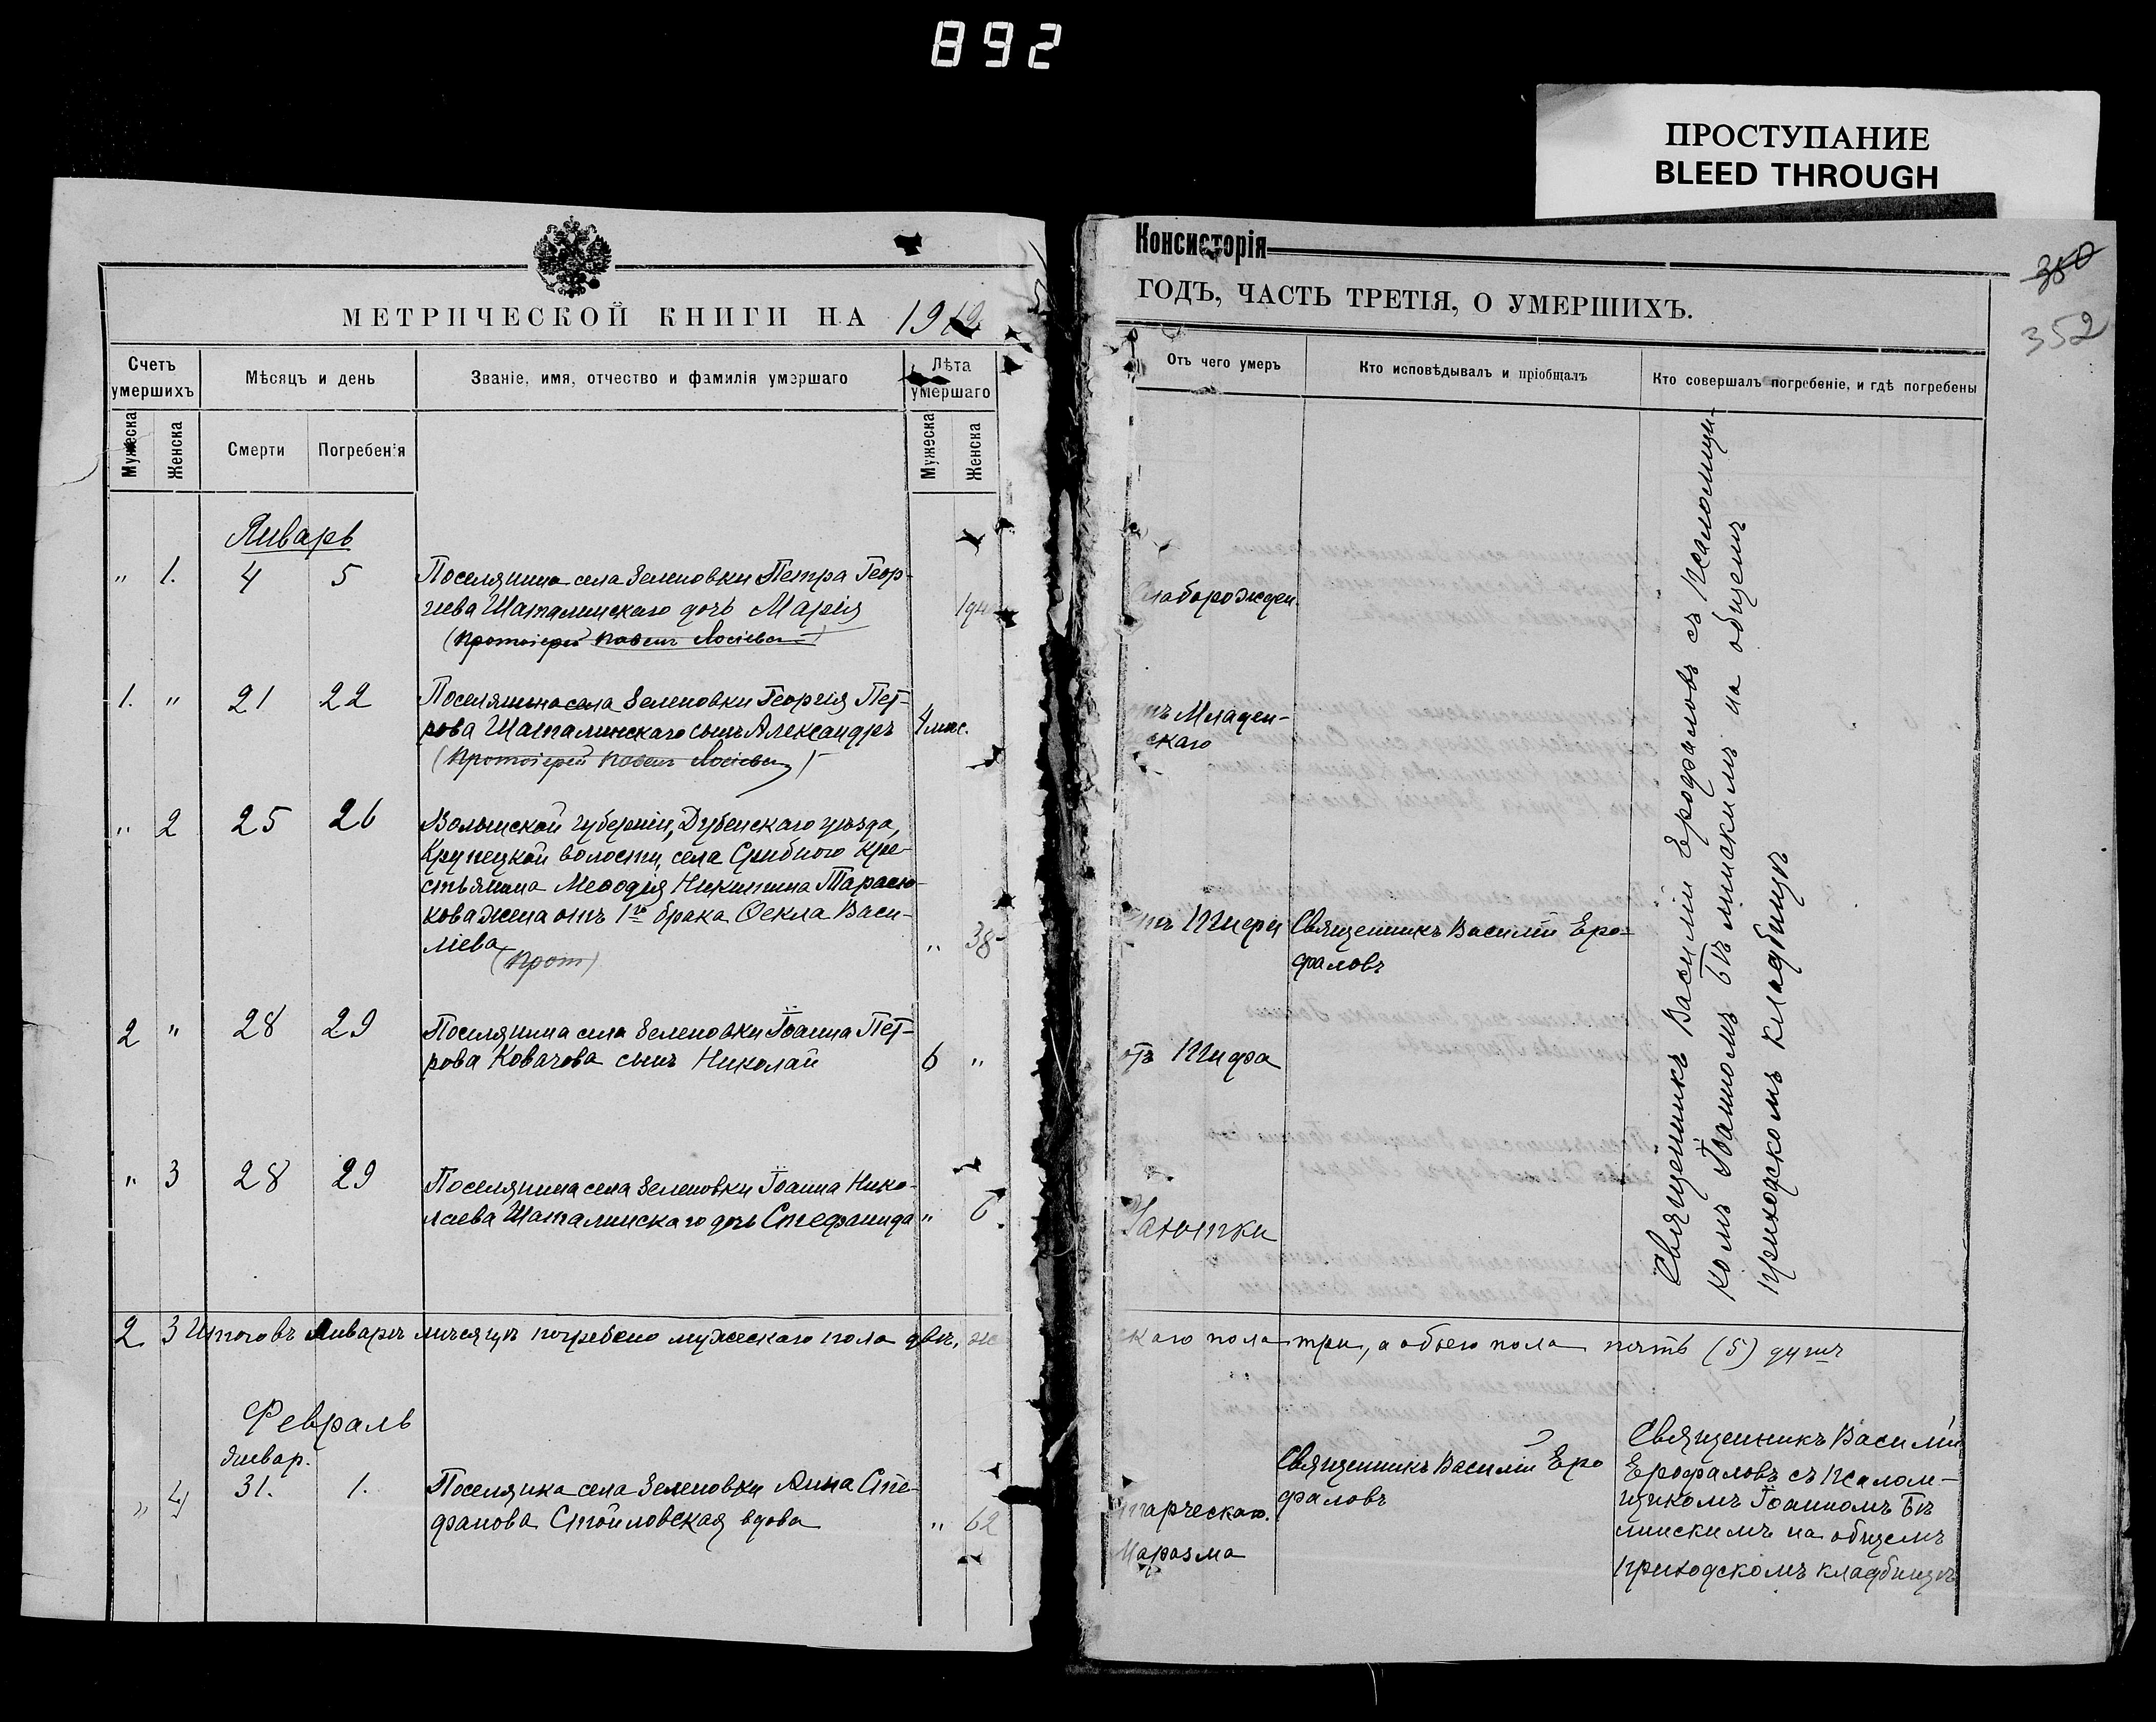 892
ПРОСТУПАНИЕ
BLEED THROUGH
Консисторія
380
352
МЕТРИЧЕСКОЙ КНИГИ НА 1912
ГОДЪ, ЧАСТЬ ТРЕТІЯ, О УМЕРШИХЪ.
Счетъ умершихъ
Мѣсяцъ и день
Званіе, имя, отчество и фамилія умершаго
Лѣта умершаго
Отъ чего умеръ
Кто исповѣдывалъ и пріобщалъ
Кто совершалъ погребеніе, и гдѣ погребены
Мужеска
Женска
Смерти
Погребенія
Мужеска
Женска
Январь
" 1. 4 5 Поселянина села Зеленовки Петра Геор-
гіева Шаталинскаго дочь Марія
(Протоіерей Павелъ Лосіевъ)
Слаборожден.
1. " 21 22 Поселянина села Зеленовки Георгія Пет-
рова Шаталинскаго сынъ Александръ 4 мѣс.
(Протоіерей Павелъ Лосіевъ)
отъ Младен-
скаго
" 2 25 26 Волынской губерніи, Дубенскаго уѣзда,
Крупецкой волости, села Срибного кре-
стьянина Меѳодія Никитина Тарасю-
кова жена отъ 1го брака Ѳекла Васи-
ліева " 38
(Прот)
отъ Тифа
Священникъ Василій Еро-
фаловъ
2 " 28 29 Поселянина села Зеленовки Іоанна Пет-
рова Ковачова сынъ Николай 6 "
отъ Тифа
" 3 28 29 Поселянина села Зеленовки Іоанна Нико-
лаева Шаталинскаго дочь Стефанида " 6.
Чахотки
Священникъ Василій Ерофаловъ съ псаломщи-
комъ Іоанномъ Бѣлинскимъ на общемъ
приходскомъ кладбищѣ
2. 3 Итого въ Январѣ мѣсяцѣ погребено мужескаго пола двѣ, же
скаго пола три, а обоего пола пять (5) душъ
Февраль
Январ.
" 4 31. 1. Поселянка села Зеленовки Анна Сте-
фанова Стойловская вдова " 62
старческаго.
Маразма
Священникъ Василій Еро
фаловъ
Священникъ Василій
Ерофаловъ съ псалом-
щикомъ Іоанномъ Бѣ
линскимъ на общемъ
приходскомъ кладбищѣ